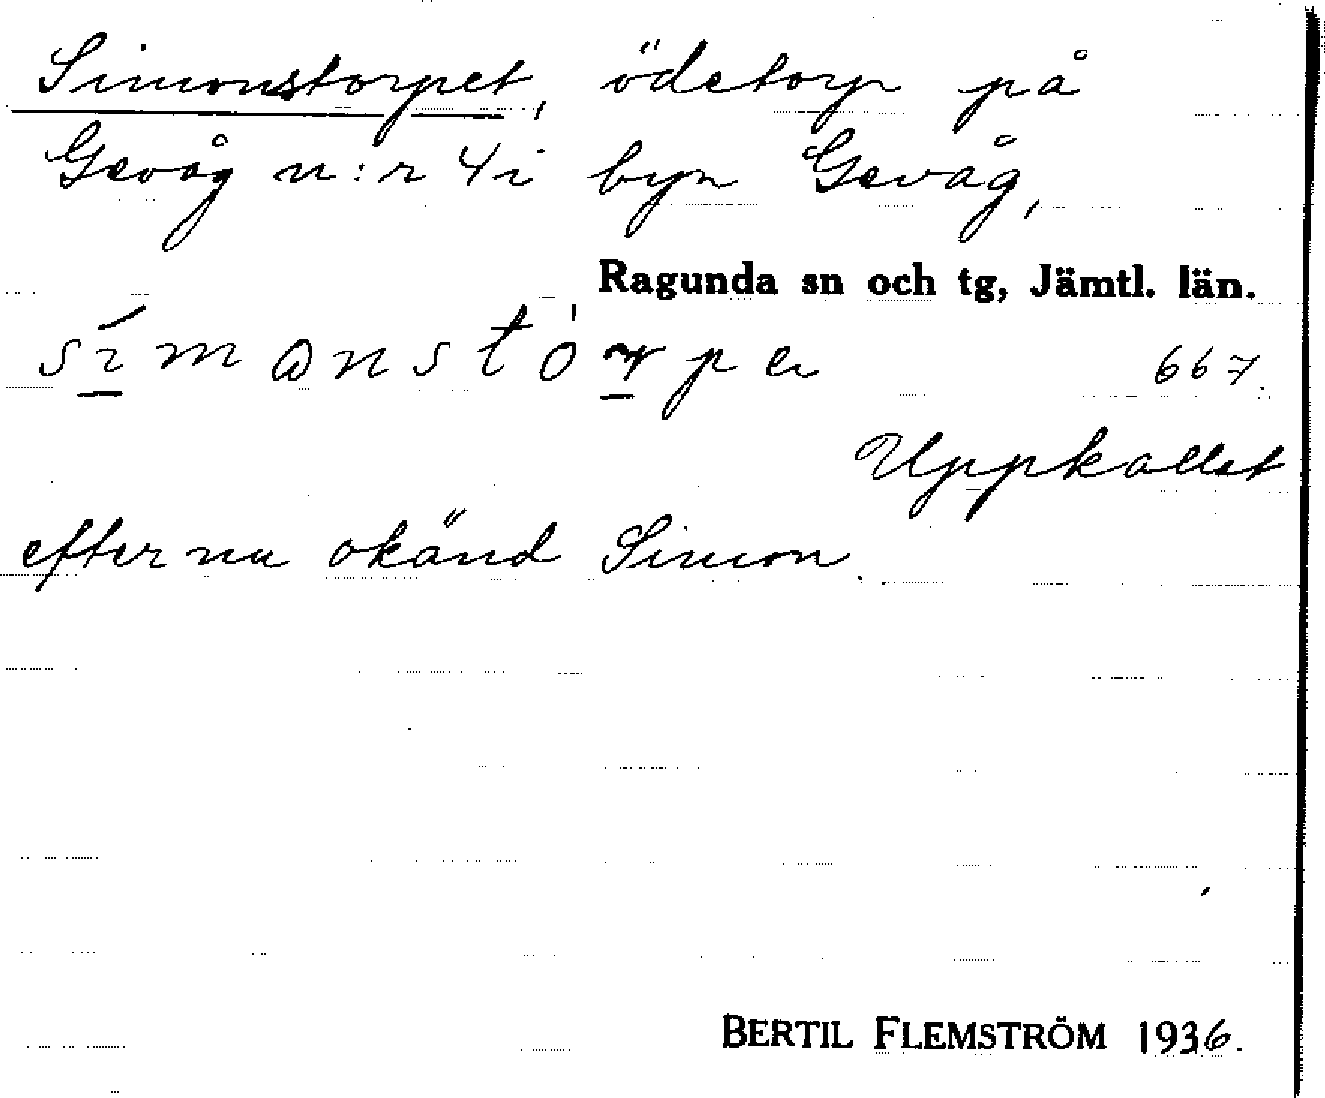 Simonstorpet, ödetorp på
Gevåg n:r 4 i byn Gevåg,
Ragunda sn och tg, Jämtl. län.
667.
Uppkallet
efter nu okänd Simon.
BERTIL FLEMSTRÖM 1936.